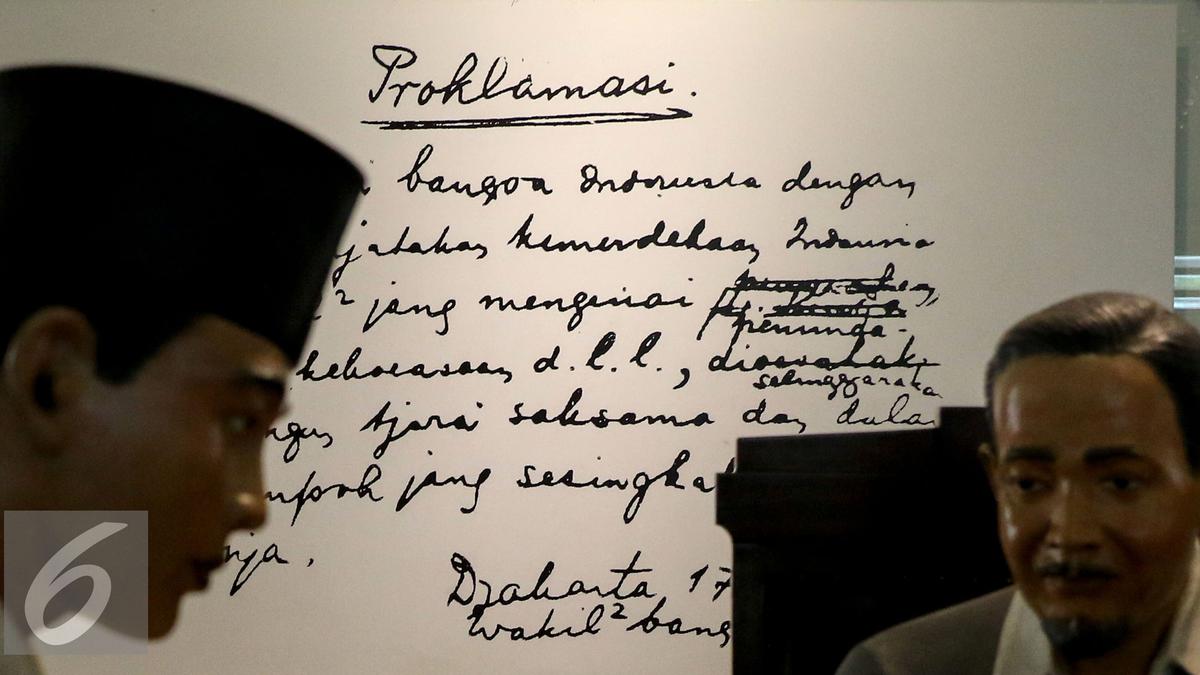 Proklamasi.
bangsa Indonesia dengan
jatakan kemerdekaan Indonesia
2 jang mengenai
penninda-
kekoeasaan d.l.l., dioesahak
selenggarakan
ngan tjara saksama dan dala
mpoh jang sesingkat
nja.
Djakarta 17
Wakil2 bang
6